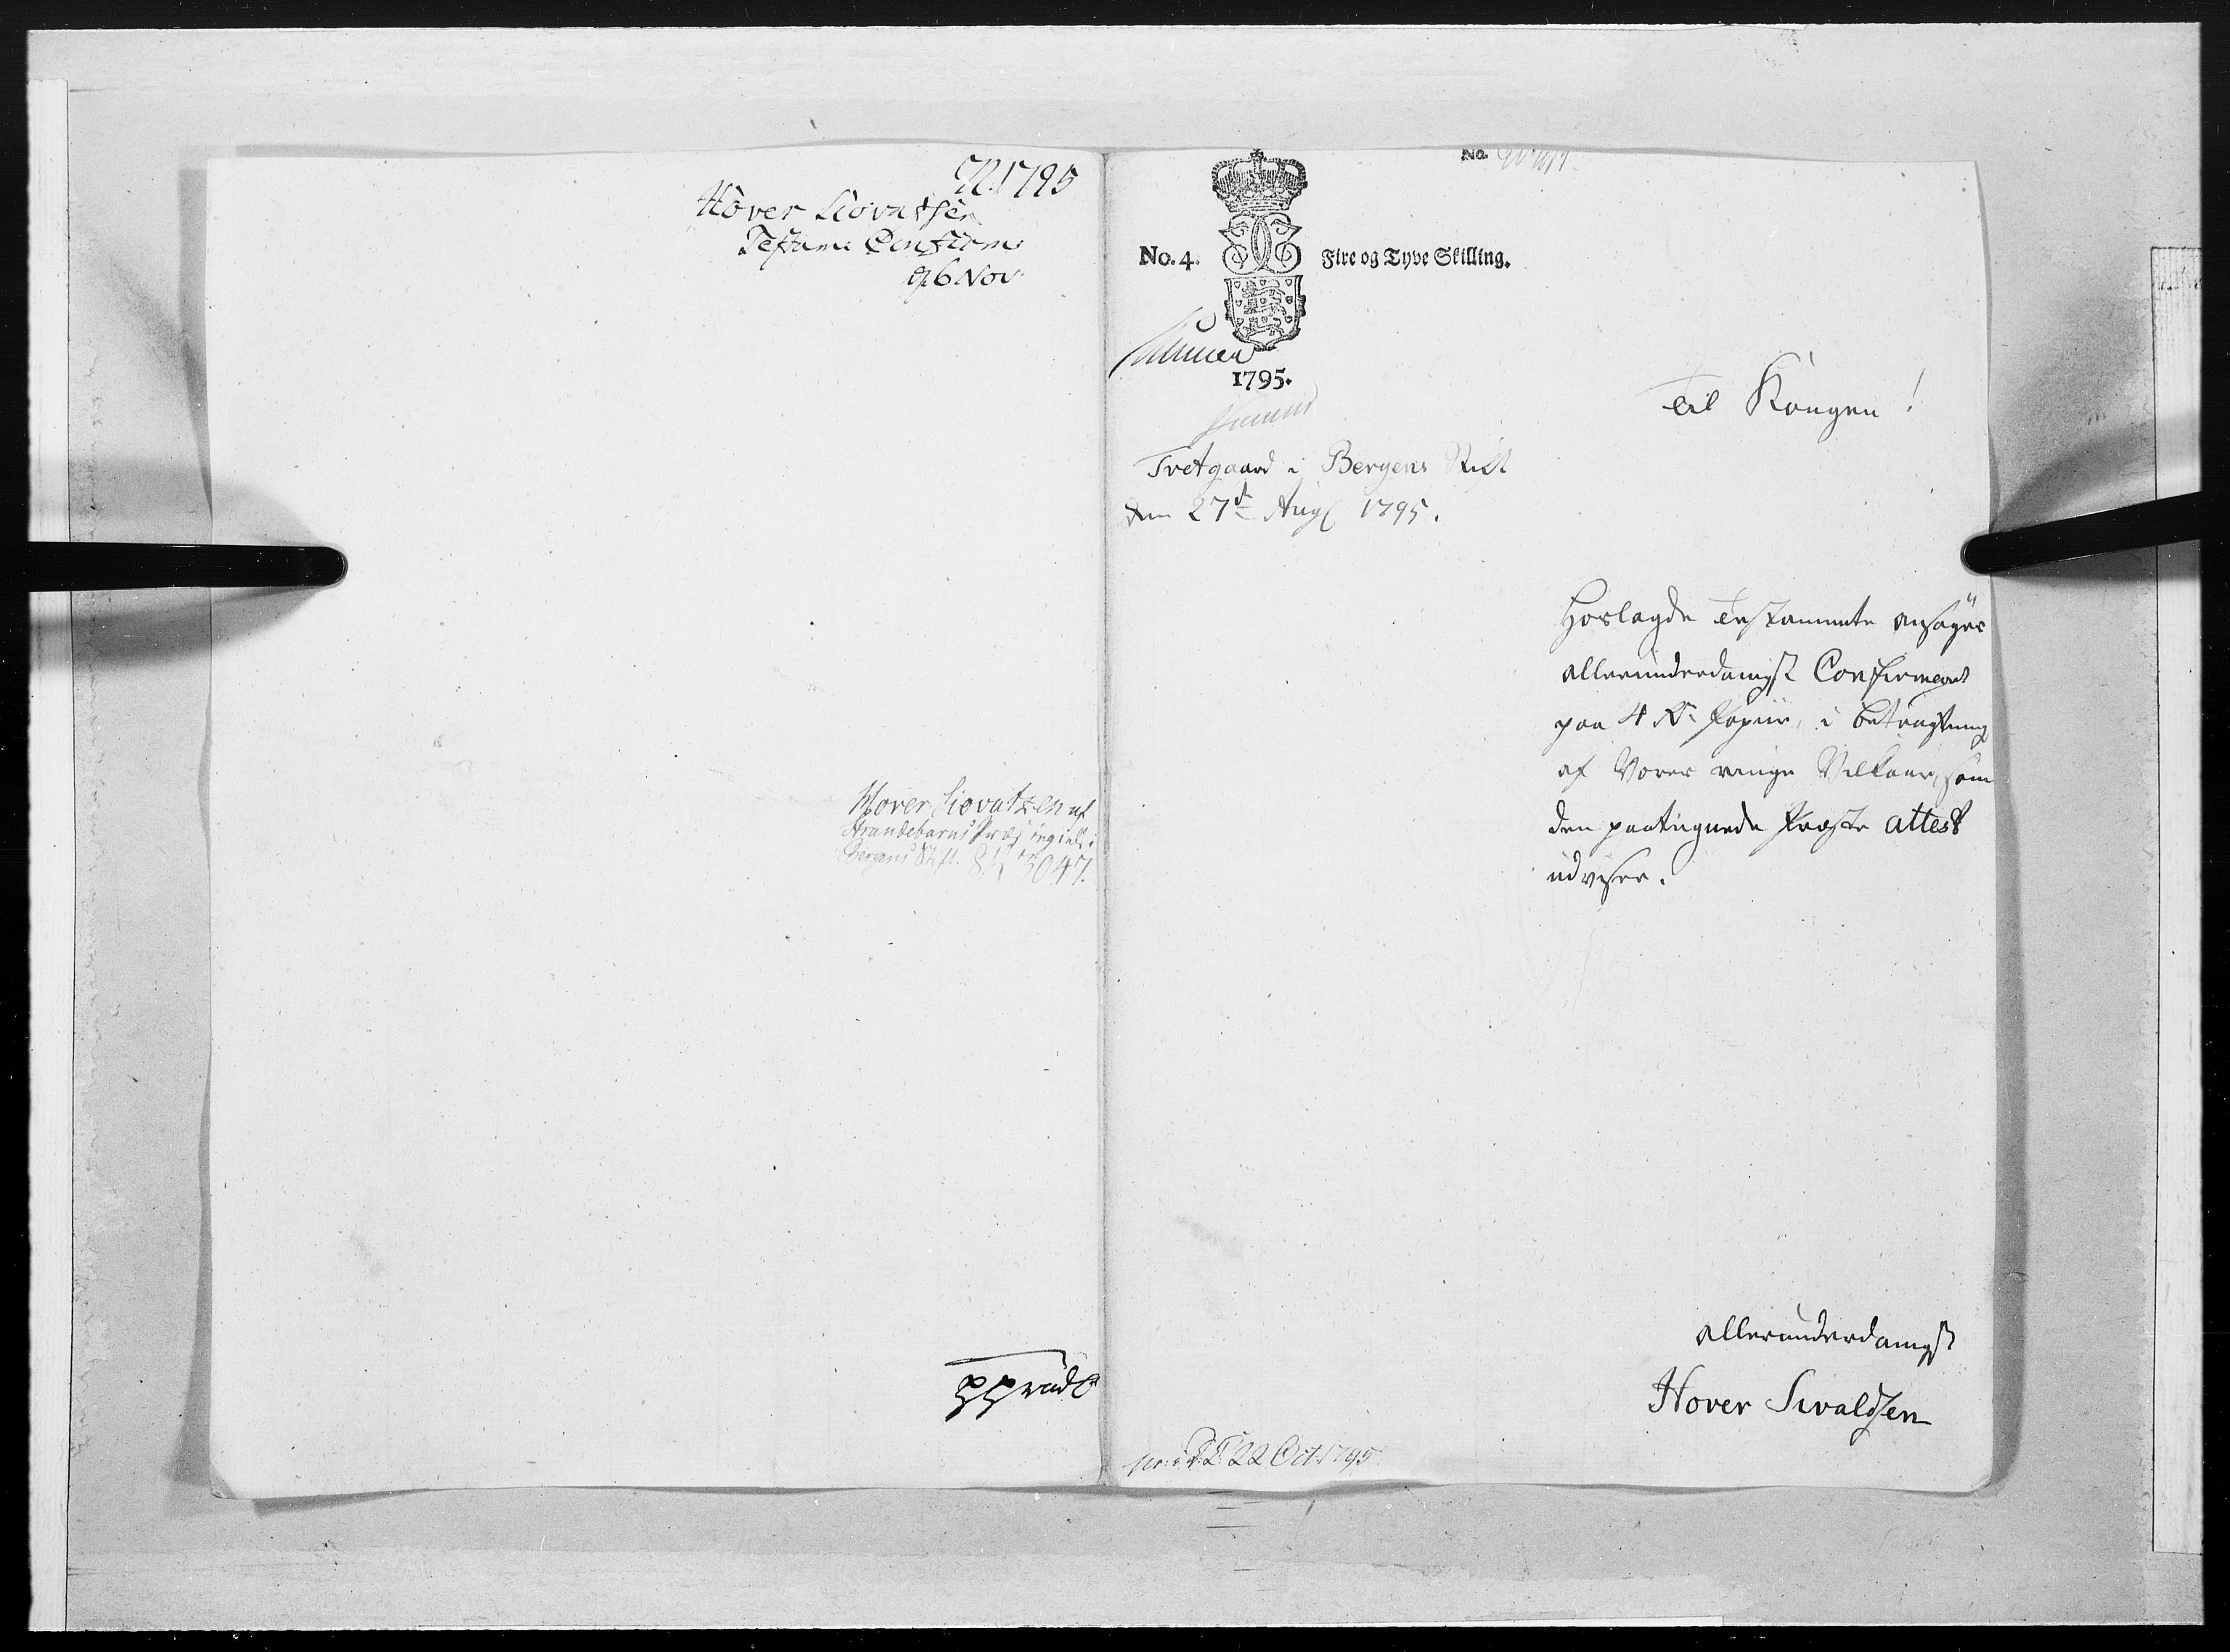 1795
Hover Siovatsen
Testam: Confirm:
6 Nov
Hover Siovatzen af
Strandebarns Præstegield i
Bergens Stift. 3047.
No.
No. 4. Fire og Tyve Skilling.
1795.
Til Kongen!
Tvetgaard i Bergens Stift
den 27de Aug 1795.
Hoslagde Testamente ansøges
allerunderdanigst Confirmeret
paa 4 Rd Papiir, i betragtning
af Vores ringe Vilkaar, som
den paategnede Præste attest
udviser.
allerunderdanigst
Hover Sivaldsen
22 Oct 1795